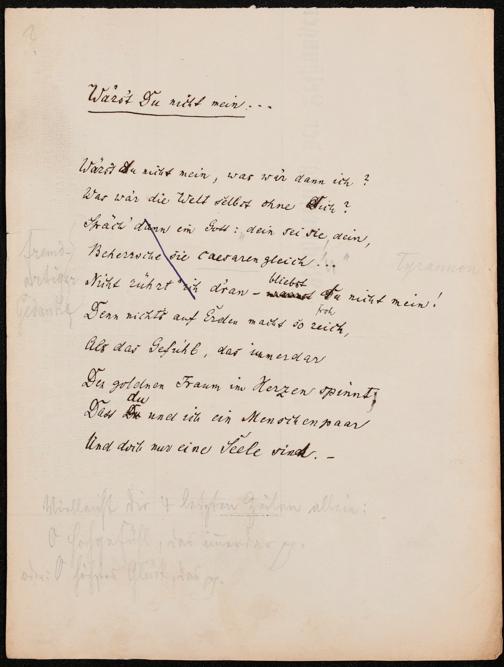 Wärst Du nicht mein...
Wärst Du nicht mein, was wär dann ich?
Was wär die Welt selbst ohne Dich?
Spräch' dann ein Gott: „dein sei sie, dein,
Beherrsche sie caesarengleich!..."
Nicht rührt' ich d'ran – bliebst Du nicht mein!
Denn nichts auf Erden macht so reich, froh
Als das Gefühl, das immerdar
Den goldnen Traum im Herzen spinnt;
Dass du und ich ein Menschenpaar
Und doch nur eine Seele sind. –
Fremd-
artiger
Gedanke
Tyrannen
Vielleicht die 4 letzten Zeilen allein:
O Hochgefühl, das immerdar pp.
oder: O höchstes Glück, das pp.